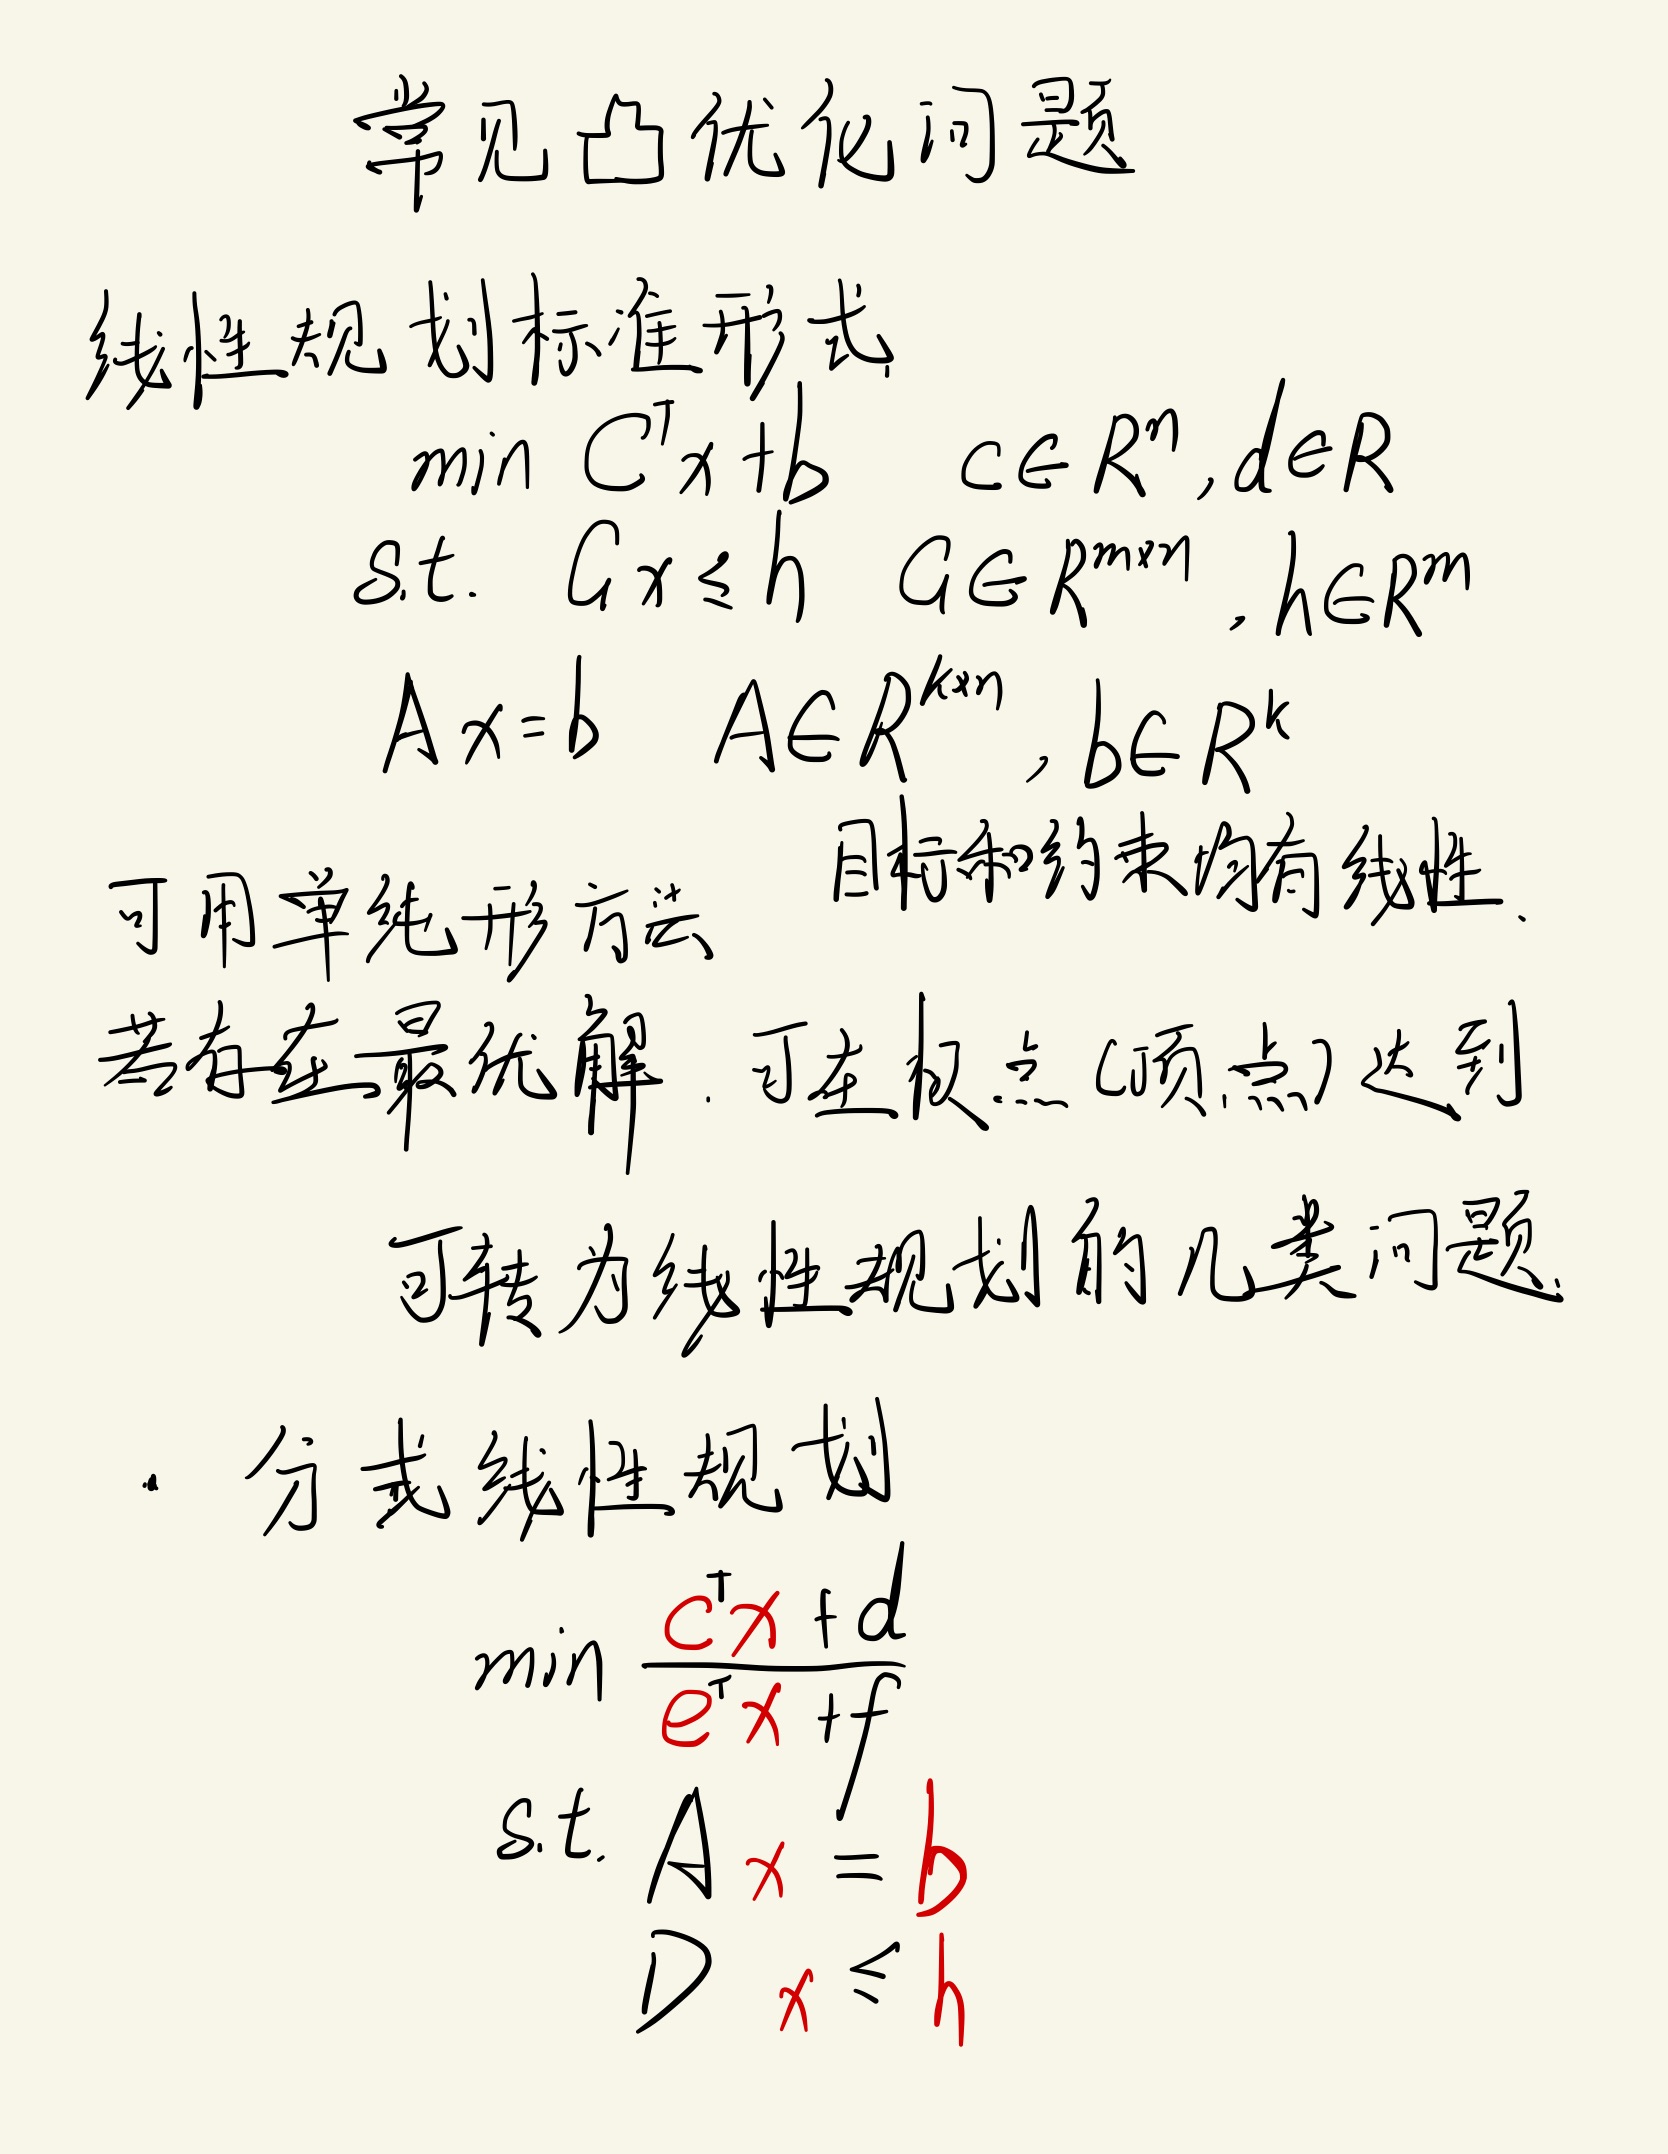 常见凸优化问题
线性规划标准形式
min Cᵀx+b  c∈Rⁿ, d∈R
s.t. Gx≤h  G∈Rᵐˣⁿ, h∈Rᵐ
Ax=b  A∈Rᵏˣⁿ, b∈Rᵏ
目标和约束均有线性.
可用单纯形方法
若存在最优解.可在极点(顶点)达到
可转为线性规划的几类问题
· 分式线性规划
min (cᵀx+d)/(eᵀx+f)
s.t. Ax=b
Dx≤h